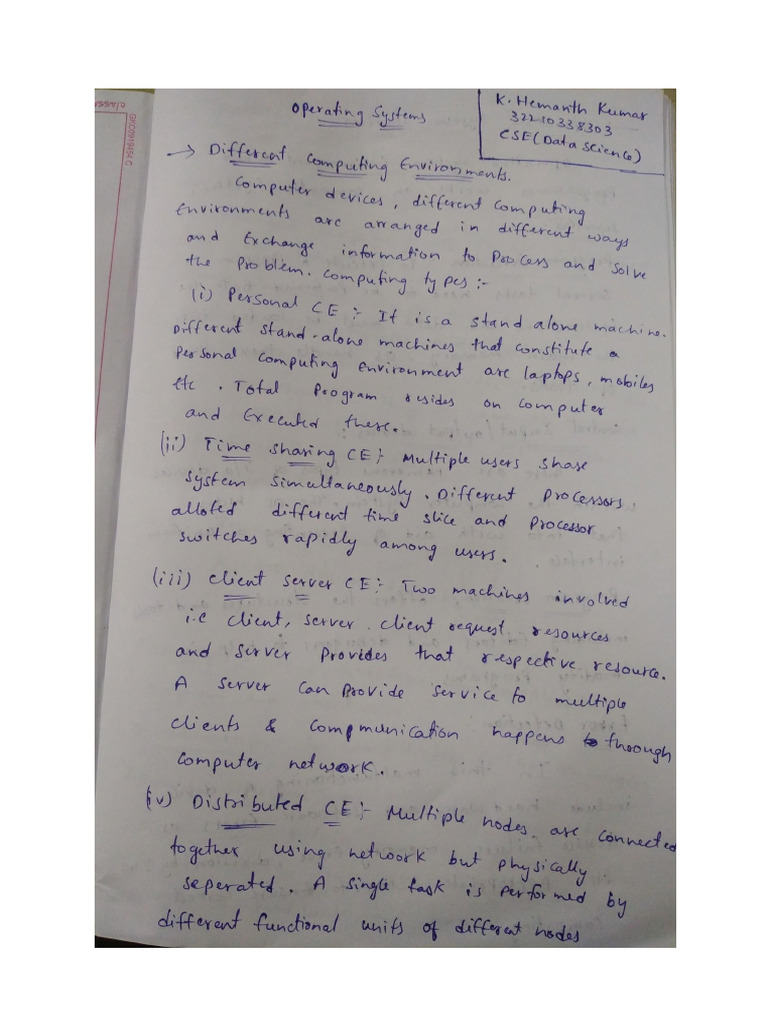 Operating Systems
K. Hemanth Kumar
32210338303
CSE(Data Science)
→ Different Computing Environments.
Computer devices, different computing
Environments are arranged in different ways
and Exchange information to Process and solve
the Problem. Computing types :-
(i) Personal CE :- It is a stand alone machine.
Different stand-alone machines that constitute a
Personal Computing Environment are laptops, mobiles
Etc. Total Program resides on computer
and Executed there.
(ii) Time sharing CE:- Multiple users share
system simultaneously. Different Processors
alloted different time slice and Processor
switches rapidly among users.
(iii) Client Server CE:- Two machines involved
i.e client, server. client request resources
and server Provides that respective resource.
A server can Provide service to multiple
clients & Communication happens through
Computer network.
(iv) Distributed CE:- Multiple nodes are connected
together using network but physically
seperated. A single task is performed by
different functional units of different nodes